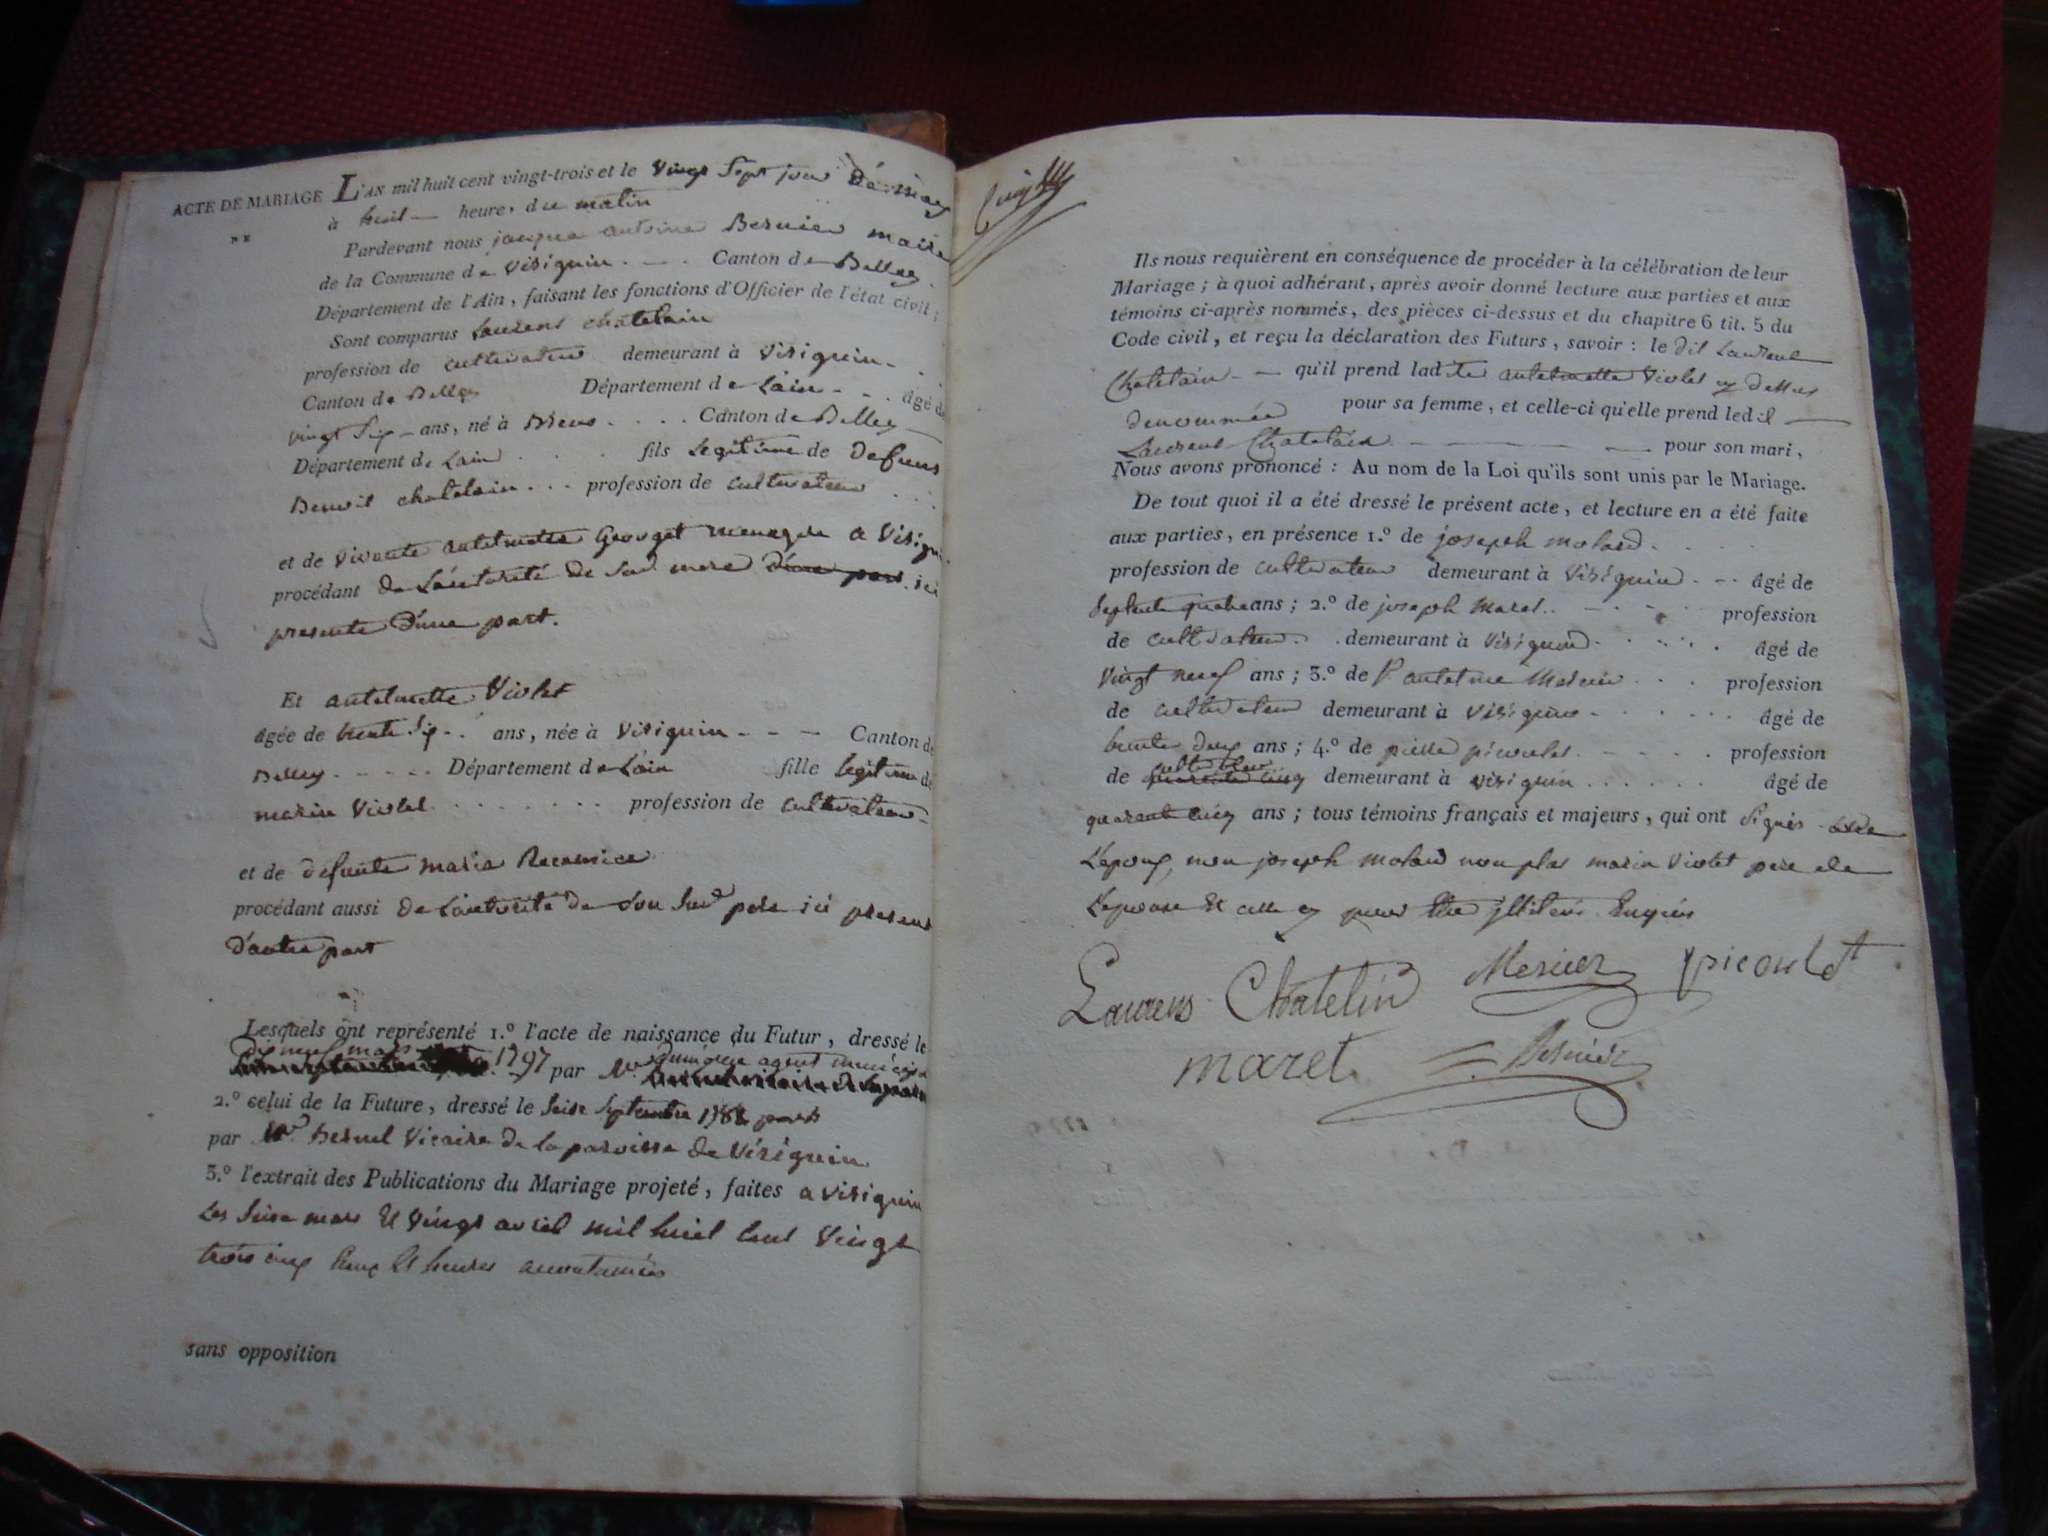 ACTE DE MARIAGE
DE
L'AN mil huit cent vingt-trois et le vingt Sept jour de may
à huit heure, du matin
Pardevant nous jacque antoine Bernier maire
de la Commune de Virignin . . . Canton de Belley
Département de l'Ain, faisant les fonctions d'Officier de l'état civil;
Sont comparus Laurens chatelain
profession de cultivateur demeurant à Virignin
Canton de Belley Département de Lain . . . âgé de
vingt Six ans, né à Brens . . . . Canton de Belley
Département de Lain . . . fils legitime de defunt
Benoit chatelain . . . profession de cultivateur . . .
et de vivante antelmette Georget menagere a Virignin
procédant de Lautorité de Sad. mere d'une part ici
presente d'une part.
Et antelmette Violet
âgée de trente Six . . ans, née à Virignin - - - Canton de
Belley . . . . . Département de Lain fille legitime de
marin Violet . . . . . . . . profession de cultivateur
et de defunte maria Recamier
procédant aussi de Lautorité de Son Sud. pere ici present
d'autre part
Lesquels ont représenté 1.º l'acte de naissance du Futur, dressé le
dix neuf mars 1797 par Mr. agent municipal
2.º celui de la Future, dressé le Seize Septembre 178
par Mr. Vicaire de la paroisse de Virignin
3.º l'extrait des Publications du Mariage projeté, faites a Virignin
Les Seize mars Et vingt avril mil huit Cent Vingt
trois aux Lieux Et heures accoutumées
sans opposition
Ils nous requièrent en conséquence de procéder à la célébration de leur
Mariage; à quoi adhérant, après avoir donné lecture aux parties et aux
témoins ci-après nommés, des pièces ci-dessus et du chapitre 6 tit. 5 du
Code civil, et reçu la déclaration des Futurs, savoir: le dit Laurent
Chatelain - - qu'il prend ladite antelmette Violet cy dessus
denommée pour sa femme, et celle-ci qu'elle prend ledit
Laurent Chatelain pour son mari,
Nous avons prononcé: Au nom de la Loi qu'ils sont unis par le Mariage.
De tout quoi il a été dressé le présent acte, et lecture en a été faite
aux parties, en présence 1.º de joseph molard . . . .
profession de cultivateur demeurant à Virignin . - . âgé de
Septente quatre ans; 2.º de joseph maret . . profession
de cultivateur . . demeurant à Virignin . . . . . . âgé de
vingt neuf ans; 3.º de antelme Mercier . . . profession
de cultivateur demeurant à Virignin . . . . . . . âgé de
trente deux ans; 4.º de pierre picoulet . . . . . . profession
de quarante cinq cultivateur demeurant à virignin . . . . . . âgé de
quarante cinq ans; tous témoins français et majeurs, qui ont Signés avec
L'epoux, non joseph molard non plus marin Violet pere de
L'epouse Et celle cy pour Etre illiterés Enquis
Laurens Chatelin Mercier ppicoulet
maret Bernier